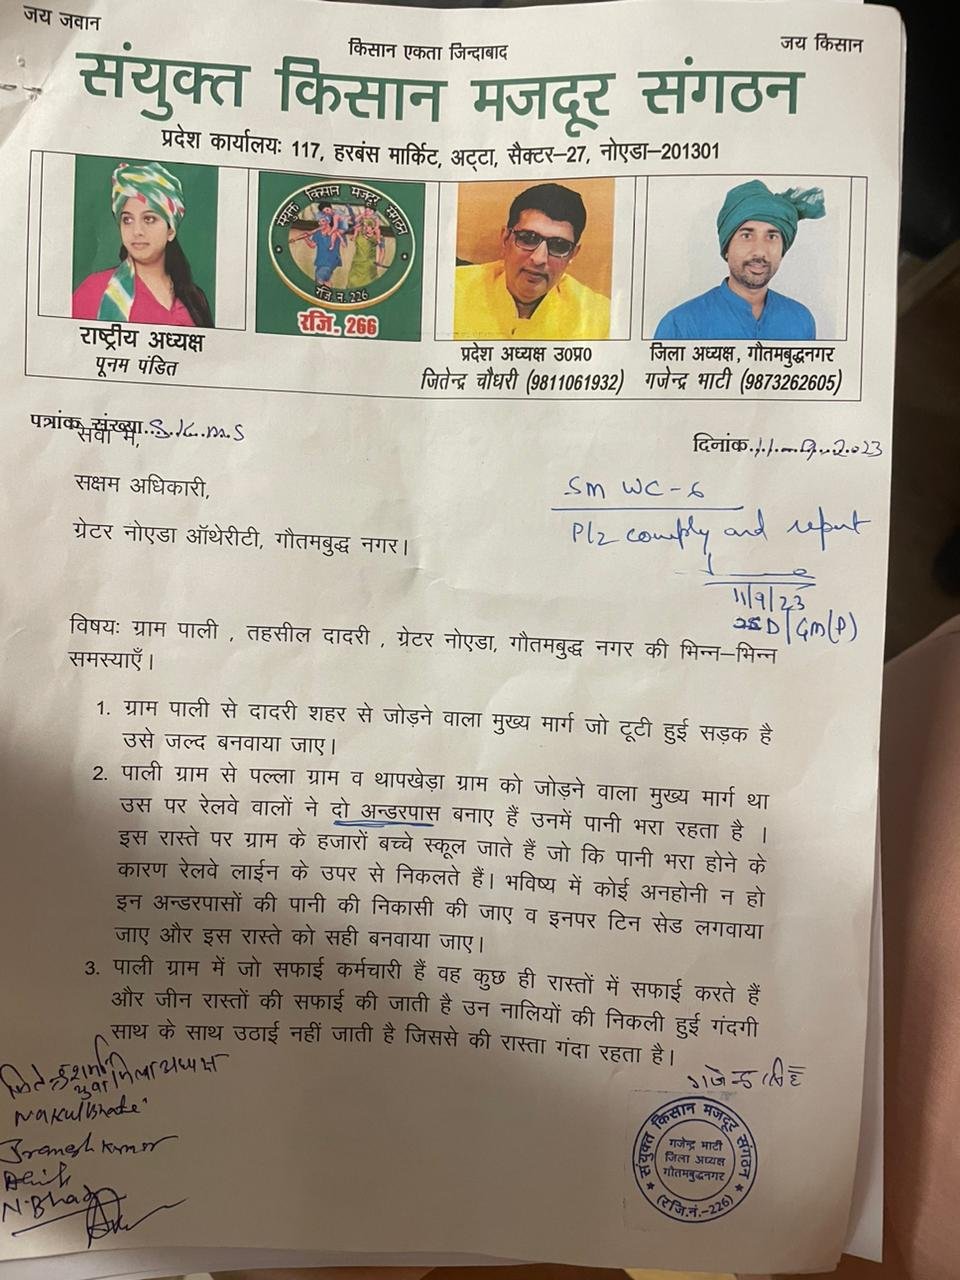 जय जवान
किसान एकता जिन्दाबाद
जय किसान
संयुक्त किसान मजदूर संगठन
प्रदेश कार्यालयः 117, हरबंस मार्किट, अट्टा, सैक्टर–27, नोएडा–201301
संयुक्त किसान मजदूर संगठन
रजि. न. 226
रजि. 266
राष्ट्रीय अध्यक्ष
पूनम पंडित
प्रदेश अध्यक्ष उ०प्र०
जितेन्द्र चौधरी (9811061932)
जिला अध्यक्ष, गौतमबुद्धनगर
गजेन्द्र भाटी (9873262605)
पत्रांक संख्या..S.K.M.S
दिनांक
2023
सेवा में,
सक्षम अधिकारी,
ग्रेटर नोएडा ऑथेरीटी, गौतमबुद्ध नगर।
SM WC-6
Plz comply and report
11/9/23
GM(P)
विषयः ग्राम पाली , तहसील दादरी , ग्रेटर नोएडा, गौतमबुद्ध नगर की भिन्न–भिन्न
समस्याएँ।
1. ग्राम पाली से दादरी शहर से जोड़ने वाला मुख्य मार्ग जो टूटी हुई सड़क है
उसे जल्द बनवाया जाए।
2. पाली ग्राम से पल्ला ग्राम व थापखेड़ा ग्राम को जोड़ने वाला मुख्य मार्ग था
उस पर रेलवे वालों ने दो अन्डरपास बनाए हैं उनमें पानी भरा रहता है ।
इस रास्ते पर ग्राम के हजारों बच्चे स्कूल जाते हैं जो कि पानी भरा होने के
कारण रेलवे लाईन के उपर से निकलते हैं। भविष्य में कोई अनहोनी न हो
इन अन्डरपासों की पानी की निकासी की जाए व इनपर टिन सेड लगवाया
जाए और इस रास्ते को सही बनवाया जाए।
3. पाली ग्राम में जो सफाई कर्मचारी हैं वह कुछ ही रास्तों में सफाई करते हैं
और जीन रास्तों की सफाई की जाती है उन नालियों की निकली हुई गंदगी
साथ के साथ उठाई नहीं जाती है जिससे की रास्ता गंदा रहता है।
युवा जिलाध्यक्ष
Nakul Bhati
Pramesh Kumar
N. Bhati
गजेन्द्र सिंह
संयुक्त किसान मजदूर संगठन
गजेन्द्र भाटी
जिला अध्यक्ष
गौतमबुद्धनगर
(रजि.नं.–226)